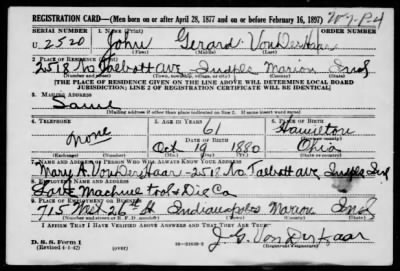 REGISTRATION CARD—(Men born on or after April 28, 1877 and on or before February 16, 1897)
SERIAL NUMBER 1. NAME (Print) ORDER NUMBER
U. 2520 John Gerard VonDerHaar
(First) (Middle) (Last)
2. PLACE OF RESIDENCE (Print)
2518 No. Talbott Ave. Indpls Marion Ind
(Number and street) (Town, township, village, or city) (County) (State)
[THE PLACE OF RESIDENCE GIVEN ON THE LINE ABOVE WILL DETERMINE LOCAL BOARD
JURISDICTION; LINE 2 OF REGISTRATION CERTIFICATE WILL BE IDENTICAL]
3. MAILING ADDRESS
Same
[Mailing address if other than place indicated on line 2. If same insert word same]
4. TELEPHONE 5. AGE IN YEARS 6. PLACE OF BIRTH
61 Hamilton
none DATE OF BIRTH (Town or county)
Oct 19 1880 Ohio
(Exchange) (Number) (Mo.) (Day) (Yr.) (State or country)
7. NAME AND ADDRESS OF PERSON WHO WILL ALWAYS KNOW YOUR ADDRESS
Mary A. VonDerHaar - 2518 No. Talbott ave, Indpls Ind
8. EMPLOYER'S NAME AND ADDRESS
Machine Tool & Die Co
9. PLACE OF EMPLOYMENT OR BUSINESS
715 West 26th St Indianapolis Marion Ind
(Number and street or R. F. D. number) (Town) (County) (State)
I AFFIRM THAT I HAVE VERIFIED ABOVE ANSWERS AND THAT THEY ARE TRUE.
D. S. S. Form 1
(Revised 4-1-42) (over)
J. G. VonDerHaar
(Registrant's signature)